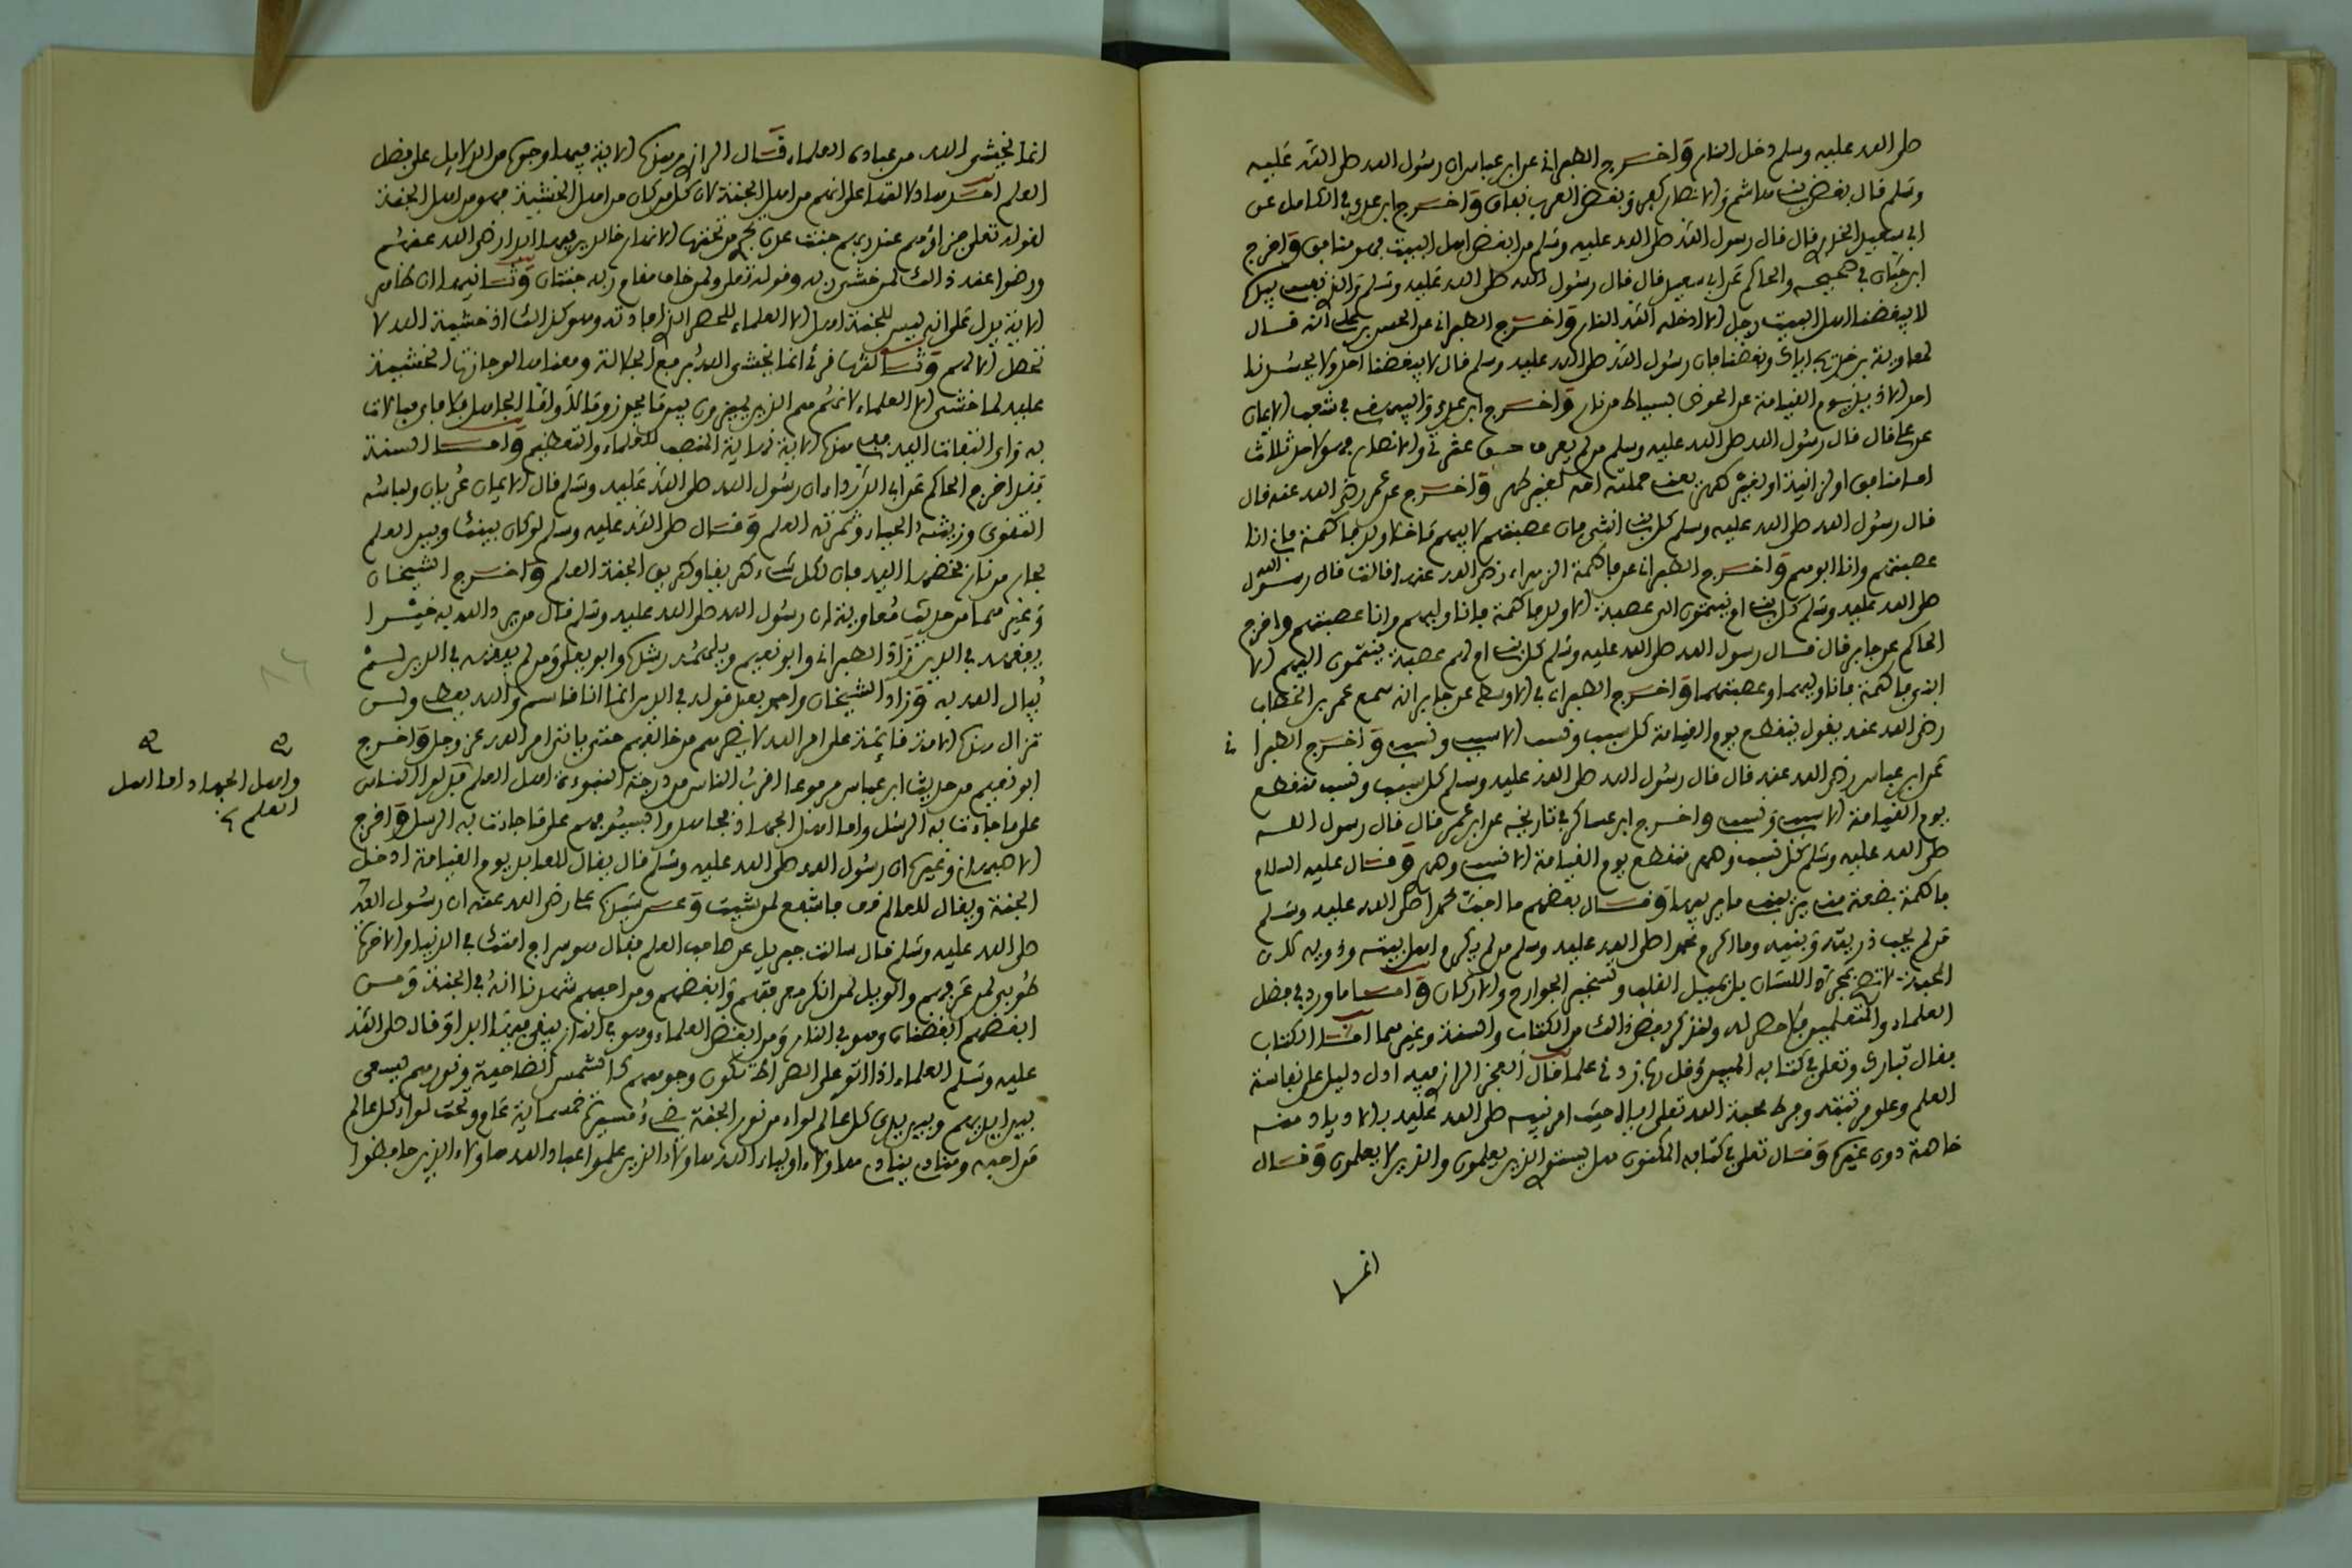 صلى الله عليه وسلم دخل النار وأخرج الطبراني عن ابن عباس ان رسول الله صلى الله عليه
وسلم قال بغض بني هاشم والانصار كفر وبغض العرب نفاق وأخرج ابن عدي في الكامل عن
ابي سعيد الخدري قال قال رسول الله صلى الله عليه وسلم من ابغض اهل البيت فهو منافق وأخرج
ابن حبان في صحيحه والحاكم عن ابي سعيد قال قال رسول الله صلى الله عليه وسلم والذي نفسي بيده
لا يبغضنا اهل البيت رجل الا ادخله الله النار وأخرج الطبراني عن الحسن بن علي انه قال
لمعاوية بن خديج اياك وبغضنا فان رسول الله صلى الله عليه وسلم قال لا يبغضنا احد ولا يحسدنا
احد الا ذيد يوم القيامة عن الحوض بسياط من نار وأخرج ابن عدي والبيهقي في شعب الايمان
عن علي قال قال رسول الله صلى الله عليه وسلم من لم يعرف حق عترتي والانصار فهو لاحد ثلاث
اما منافق او لزانية او لغير طهر يعني حملته امه لغير طهر وأخرج عن عمر رضي الله عنه قال
قال رسول الله صلى الله عليه وسلم كل بني انثى فان عصبتهم لابيهم ما خلا ولد فاطمة فاني انا
عصبتهم وانا ابوهم وأخرج الطبراني عن فاطمة الزهراء رضي الله عنها قالت قال رسول الله
صلى الله عليه وسلم كل بني ام ينتمون الى عصبة الا ولد فاطمة فانا وليهم وانا عصبتهم وأخرج
الحاكم عن جابر قال قال رسول الله صلى الله عليه وسلم كل بني ام لهم عصبة ينتمون اليهم الا
ابني فاطمة فانا وليهما وعصبتهما وأخرج الطبراني في الاوسط عن جابر انه سمع عمر بن الخطاب
رضي الله عنه يقول ينقطع يوم القيامة كل سبب ونسب الا سببي ونسبي وأخرج الطبراني
عن ابن عباس رضي الله عنه قال قال رسول الله صلى الله عليه وسلم كل سبب ونسب منقطع
يوم القيامة الا سببي ونسبي وأخرج ابن عساكر في تاريخه عن ابن عمر قال قال رسول الله
صلى الله عليه وسلم كل نسب وصهر منقطع يوم القيامة الا نسبي وصهري وقال عليه السلام
فاطمة بضعة مني يريبني ما يريبها وقال بعضهم ما احب محمدا صلى الله عليه وسلم
من لم يحب ذريته وبنيه وما اكرم محمدا صلى الله عليه وسلم من لم يكرم اهل بيته وذويه لان
المحبة لا تصح بحركة اللسان بل بميل القلب وتسخير الجوارح والاركان وأما ما ورد في فضل
العلماء والمتعلمين فلا حصر له ولنذكر بعض ذلك من الكتاب والسنة وغيرهما اما الكتاب
فقال تبارك وتعالى في كتابه المبين وقل رب زدني علما قال الفخر الرازي فيه ادل دليل على نفاسة
العلم وعلو مرتبته وفرط محبة الله تعالى اياه حيث امر نبيه صلى الله عليه بالازدياد منه
خاصة دون غيره وقال تعالى في كتابه المكنون هل يستوي الذين يعلمون والذين لا يعلمون وقال
انما
انما يخشى الله من عباده العلماء قال الرازي وهذه الاية فيها وجوه من الدلايل على فضل
العلم احدها دلالتها على انهم من اهل الجنة لان كل من كان من اهل الخشية فهو من اهل الجنة
لقوله تعالى جزاؤهم عند ربهم جنت عدن تجري من تحتها الانهار خالدين فيها ابدا رضي الله عنهم
ورضوا عنه ذلك لمن خشي ربه وقوله تعالى ولمن خاف مقام ربه جنتان وثانيها ان ظاهر
الاية يدل على انه ليس للجنة اهل الا العلماء للحصر الذي افادته وهو كذلك اذ خشية الله لا
تحصل الا لهم وثالثها قرئ انما يخشى الله برفع الجلالة ومعناه لو جازت الخشية
عليه لما خشي الا العلماء لانهم هم الذين يميزون بين ما يجوز وما لا واما الجاهل فلا مبالات
به واي التفات اليه ففي هذه الاية نهاية المنصب للعلماء والتعظيم واما السنة
فقد اخرج الحاكم عن ابي الدرداء ان رسول الله صلى الله عليه وسلم قال الايمان عريان ولباسه
التقوى وزينته الحياء وثمرته العلم وقال صلى الله عليه وسلم لو كان بينك وبين العلم
بحار من نار تخضها اليه فان لكل شيء طريقا وطريق الجنة العلم وأخرج الشيخان
وغيرهما من حديث معاوية ان رسول الله صلى الله عليه وسلم قال من يرد الله به خيرا
يفقهه في الدين زاد الطبراني وابو نعيم ويلهمه رشده وابو يعلى ومن لم يفقهه في الدين لم
يبال الله به وزاد الشيخان واحمد بعد قوله في الدين انما انا قاسم والله يعطي ولن
تزال هذه الامة قائمة على امر الله لا يضرهم من خالفهم حتى ياتي امر الله عز وجل وأخرج
ابو نعيم من حديث ابن عباس مرفوعا اقرب الناس من درجة النبوءة اهل العلم فدلوا الناس
على ما جاءت به الرسل واما اهل الجهاد فجاهدوا بسيوفهم على ما جاءت به الرسل وأخرج
الاصبهاني وغيره ان رسول الله صلى الله عليه وسلم قال يقال للعابد يوم القيامة ادخل
الجنة ويقال للعالم قف فاشفع لمن شئت وعن سيدنا علي رضي الله عنه ان رسول الله
صلى الله عليه وسلم قال سالت جبريل عن صاحب العلم فقال هو سراج امتك في الدنيا والاخرة
طوبى لمن عرفهم والويل لمن انكر معرفتهم وابغضهم ومن احبهم شهدنا انه في الجنة ومن
ابغضهم ابغضناه وهو في النار ومن ابغض العلماء وهو في النار يبقى فيها ابدا وقال صلى الله
عليه وسلم العلماء اذا اتوا على الصراط تكون وجوههم كالشمس الضاحية ونورهم يسعى
بين ايديهم وبين يدي كل عالم لواء من نور الجنة يضيء مسيرة خمسماية عام وتحت لواء كل عالم
من احبه ومناد ينادي هؤلاء اولياء الله هؤلاء الذين علموا عباد الله هؤلاء الذين حافظوا
صح صح
واهل الجهاد اما اهل
العلم